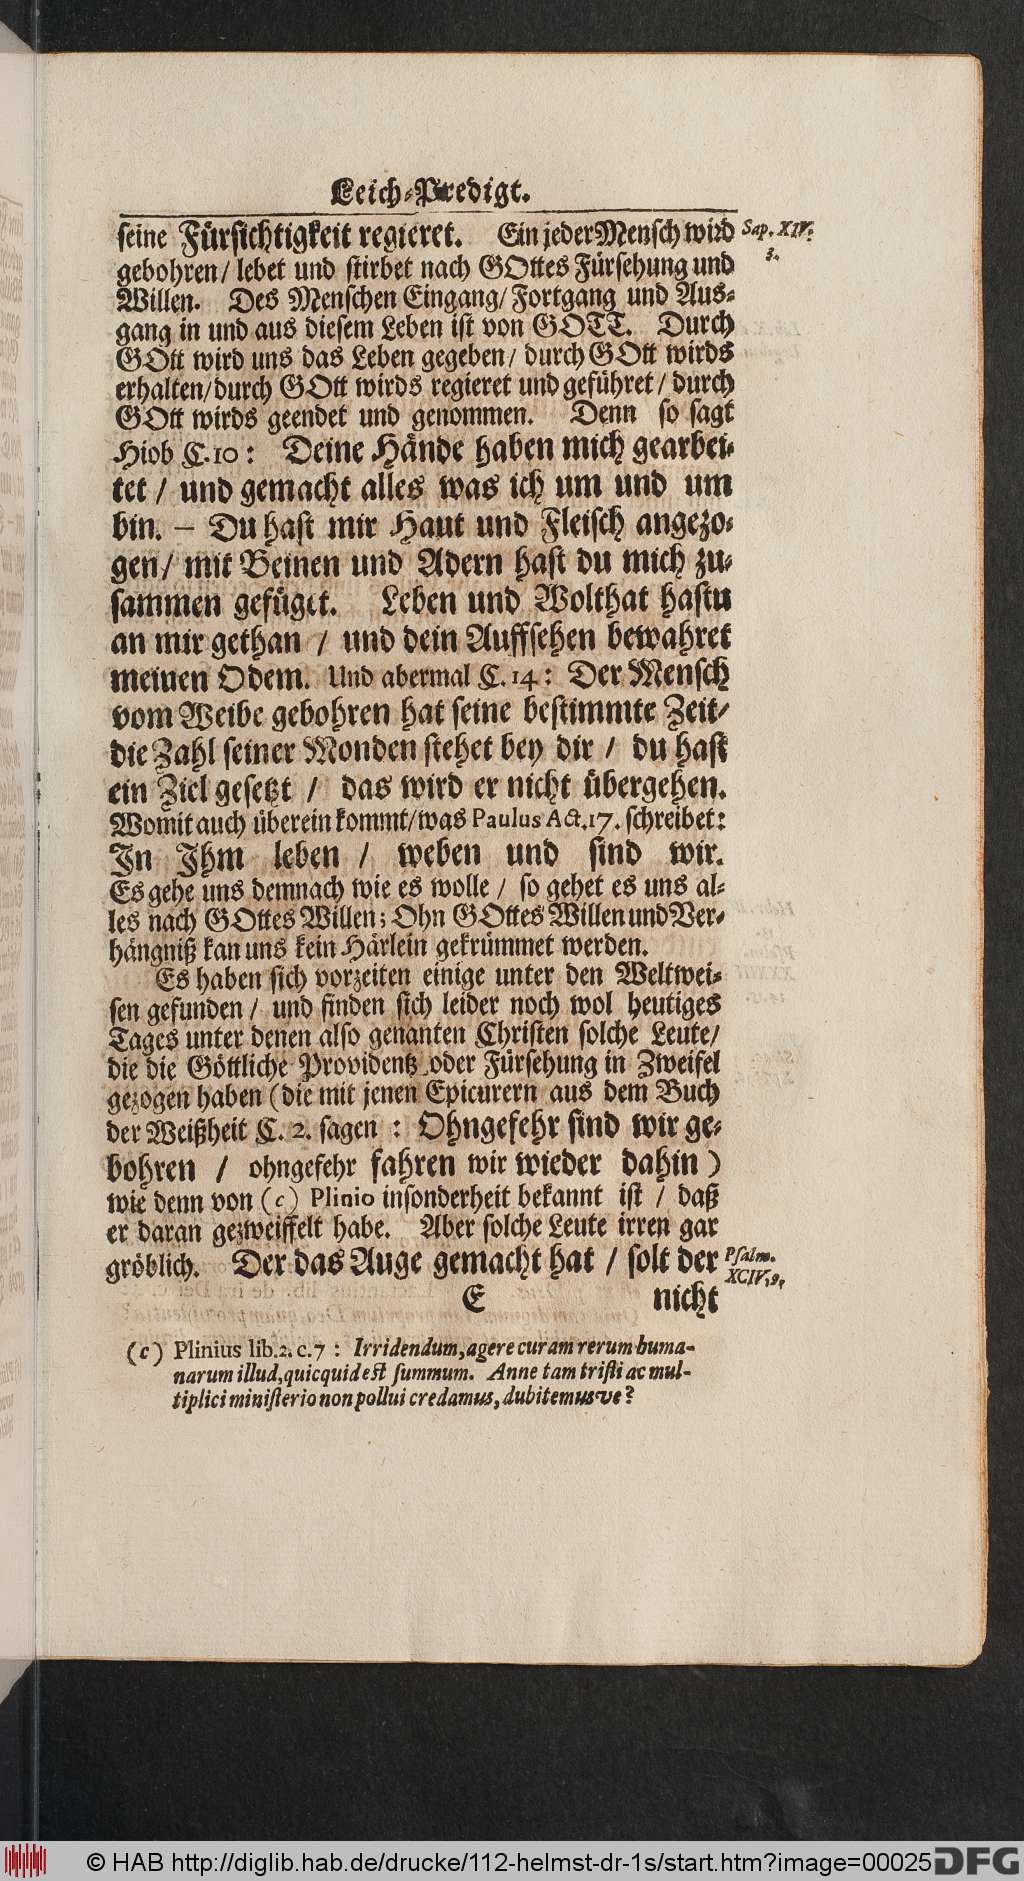 Leich-Predigt.
seine Fürsichtigkeit regieret. Ein jeder Mensch wird Sap. XIV. 3.
gebohren / lebet und stirbet nach GOttes Fürsehung und
Willen. Des Menschen Eingang / Fortgang und Aus-
gang in und aus diesem Leben ist von GOTT. Durch
GOtt wird uns das Leben gegeben / durch GOtt wirds
erhalten / durch GOtt wirds regieret und geführet / durch
GOtt wirds geendet und genommen. Denn so sagt
Hiob C. 10: Deine Hände haben mich gearbei-
tet / und gemacht alles was ich um und um
bin. – Du hast mir Haut und Fleisch angezo-
gen / mit Beinen und Adern hast du mich zu-
sammen gefüget. Leben und Wolthat hastu
an mir gethan / und dein Auffsehen bewahret
meinen Odem. Und abermal C. 14: Der Mensch
vom Weibe gebohren hat seine bestimmte Zeit /
die Zahl seiner Monden stehet bey dir / du hast
ein Ziel gesetzt / das wird er nicht übergehen.
Womit auch überein kommt / was Paulus Act. 17. schreibet:
In Ihm leben / weben und sind wir.
Es gehe uns demnach wie es wolle / so gehet es uns al-
les nach GOttes Willen; Ohn GOttes Willen und Ver-
hängniß kan uns kein Härlein gekrümmet werden.
Es haben sich vorzeiten einige unter den Weltwei-
sen gefunden / und finden sich leider noch wol heutiges
Tages unter denen also genanten Christen solche Leute /
die die Göttliche Providentz oder Fürsehung in Zweifel
gezogen haben (die mit jenen Epicurern aus dem Buch
der Weißheit C. 2. sagen: Ohngefehr sind wir ge-
bohren / ohngefehr fahren wir wieder dahin)
wie denn von (c) Plinio insonderheit bekannt ist / daß
er daran gezweiffelt habe. Aber solche Leute irren gar
gröblich. Der das Auge gemacht hat / solt der Psalm. XCIV, 9.
E nicht
(c) Plinius lib. 2. c. 7: Irridendum, agere curam rerum huma-
narum illud, quicquid est summum. Anne tam tristi ac mul-
tiplici ministerio non pollui credamus, dubitemus-ve?
© HAB http://diglib.hab.de/drucke/112-helmst-dr-1s/start.htm?image=00025 DFG